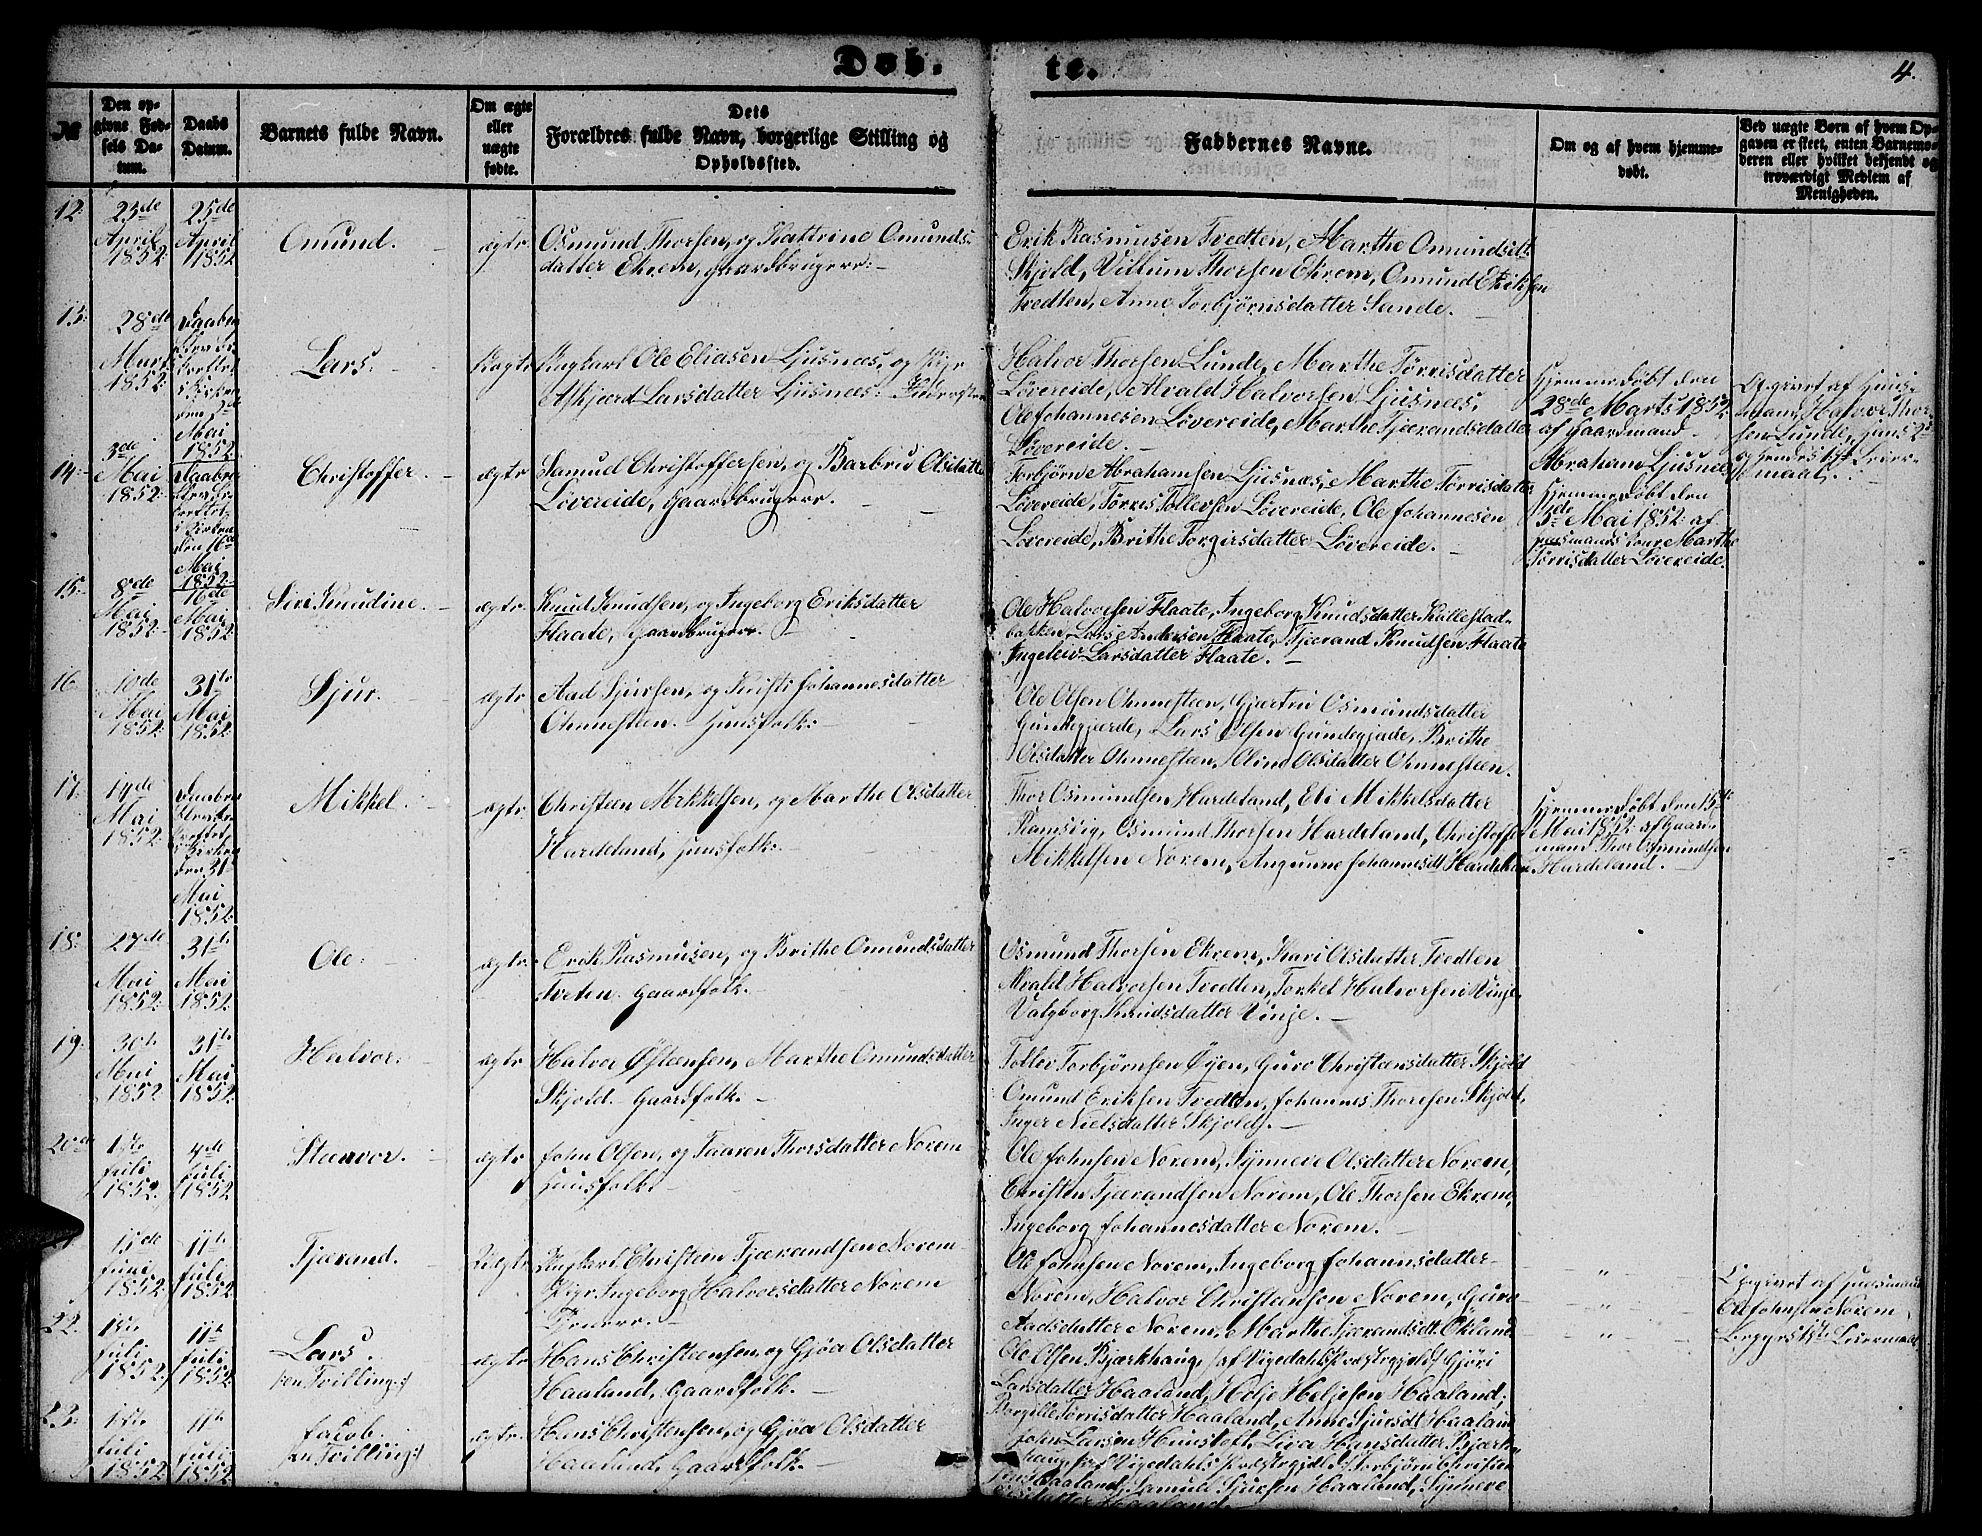 Døb.
te.
4.
№
Den op-
givne Fød-
sels Da-
tum.
Daabs
Datum.
Barnets fulde Navn.
Om ægte
eller
uægte
fødte.
Dets
Forældres fulde Navn, borgerlige Stilling og
Opholdssted.
Faddernes Navne.
Om og af hvem hjemme-
døbt.
Ved uægte Børn af hvem Op-
gaven er skeet, enten Barnemo-
deren eller hvilket bekjendt og
troværdigt Medlem af
Menigheden.
12.
25de
April
1852
25de
April
1852
Omund.
Osmund Thorsen, og Kattrine Omunds-
datter Ekrem, Gaardbrugere.
Erik Rasmusen Tvedten, Marthe Omundsdt.
Skjold, Villum Thorsen Ekrem, Omund Eriksen
Tvedten, Anne Torbjørnsdatter Sande.
13.
28de
Marts
1852
i Kirken
den 2de
Mai
1852
Lars.
Ungkarl Ole Eliasen Ljusnæs, og Pige
Askjærd Larsdatter Ljusnæs.
Halvor Thorsen Lunde, Marthe Tørrisdatter
Løvereide, Alvald Halvorsen Ljusnæs,
Ole Johannesen Løvereide, Marthe Tjærandsdatter
Løvereide.
Hjemmedøbt den
28de Marts 1852
af Gaardmand
Abraham Ljusnæs
Opgivet af Huus-
mand Halvor Thor-
sen Lunde, hans 2det
og hendes 1ste Leier-
maal.
14.
3de
Mai
1852
i Kirken
den 16de
Mai
1852
Christoffer.
ægte
Samuel Christoffersen, og Barbru Olsdatter
Løvereide, Gaardbrugere.
Torbjørn Abrahamsen Ljusnæs, Marthe Tørrisdatter
Løvereide, Tørres Tollevsen Løvereide, Ole Johannesen
Løvereide, Brithe Torgirsdatter Løvereide.
Hjemmedøbt den
5de Mai 1852 af
Huusmands Kone Marthe
Tørrisdatter Løvereide.
15.
8de
Mai
1852
16de
Mai
1852
Siri Knudine.
ægte
Knud Knudsen, og Ingeborg Eriksdatter
Flaate, Gaardbrugere.
Ole Halvorsen Flaate, Ingeborg Knudsdatter Kallestad-
bakken, Lars Andersen Flaate, Tjerand Knudsen Flaate
Ingeleiv Larsdatter Flaate.
16
10de
Mai
1852
31te
Mai
1852
Sjur.
ægte
Aad Sjursen, og Kirsti Johannesdatter
Ohmesteen. Huusfolk.
Ole Olsen Ohmesteen, Gjærtru Osmundsdatter
Gundegjerde, Lars Olsen Gundegjade, Brithe
Olsdatter Ohmesteen, Oline Olsdatter Ohmesteen.
17.
14de
Mai
1852
i Kirken
den 31te
Mai
1852
Mikkel.
ægte
Christeen Mikkelsen, og Marthe Olsdatter
Hardeland, Huusfolk.
Thor Osmundsen Hardeland, Eli Mikkelsdatter
Ramsvig, Osmund Thorsen Hardeland, Christoffer
Mikkelsen Norem, Angunne Johannesdt. Hardeland.
Hjemmedøbt den 15de
Mai 1852 af Gaard-
mand Thor Osmundsen
Hardeland.
18.
27de
Mai
1852
31te
Mai
1852
Ole.
ægte
Erik Rasmusen, og Brithe Omundsdatter
Tveten. Gaardfolk.
Osmund Thorsen Ekrem, Kari Olsdatter Tvedten
Alvald Halvorsen Tvedten, Torkel Halvorsen Vinje,
Valgborg Knudsdatter Vinje.
19.
30te
Mai
1852
31te
Mai
1852
Halvor.
ægte
Halvor Østensen, Marthe Omundsdatter
Skjold. Gaardfolk.
Tollev Torbjørnsen Øyen, Guro Christensdatter Skjold
Omund Eriksen Tvedten, Johannes Thoresen Skjold,
Inger Nielsdatter Skjold.
20de
1ste
Juli
1852
4de
Juli
1852
Steenvor.
ægte
John Olsen, og Taaren Thorsdatter Norem
Huusfolk.
Ole Johnsen Norem, Synneve Olsdatter Norem,
Christen Tjærandsen Norem, Ole Thorsen Ekrem,
Ingeborg Johannesdatter Norem.
15de
Juni
1852
11te
Juli
1852
Tjærand.
Uægte
Ungkarl Christeen Tjærandsen Norem
Pige Ingeborg Halvorsdatter Norem
Ole Johnsen Norem, Ingeborg Johannsdatter
Norem, Halvor Christensen Norem, Guro
Aadsdatter Norem, Marthe Tjærandsdt. Økland
Opgivet af Huusmand
Ole Johnsen Norem
22.
1ste
Juli
1852
11te
Juli
1852
Lars.
/:en Tvilling:/
ægte
Hans Christensen, og Gjøa Olsdatter
Haaland, Gaardfolk.
Ole Olsen Bjærkhaug, /af Vigedahls Præstegjeld/ Gjøri
Larsdatter Haaland, Helje Heljesen Haaland,
Borgille Tørrisdatter Haaland, Anne Sjursdt Haaland
23.
1ste
Juli
1852
11te
Juli
1852
Jacob.
/:en Tvilling:/
ægte
Hans Christensen, og Gjøa Olsdatter
Haaland, Gaardfolk.
John Larsen Hunstoft, Liva Hansdatter Bjærk-
haug /af Vigedahls Præstegjeld/ Torbjørn Christen-
sen Haaland, Samuel Sjursen Haaland, Synneve
Haaland